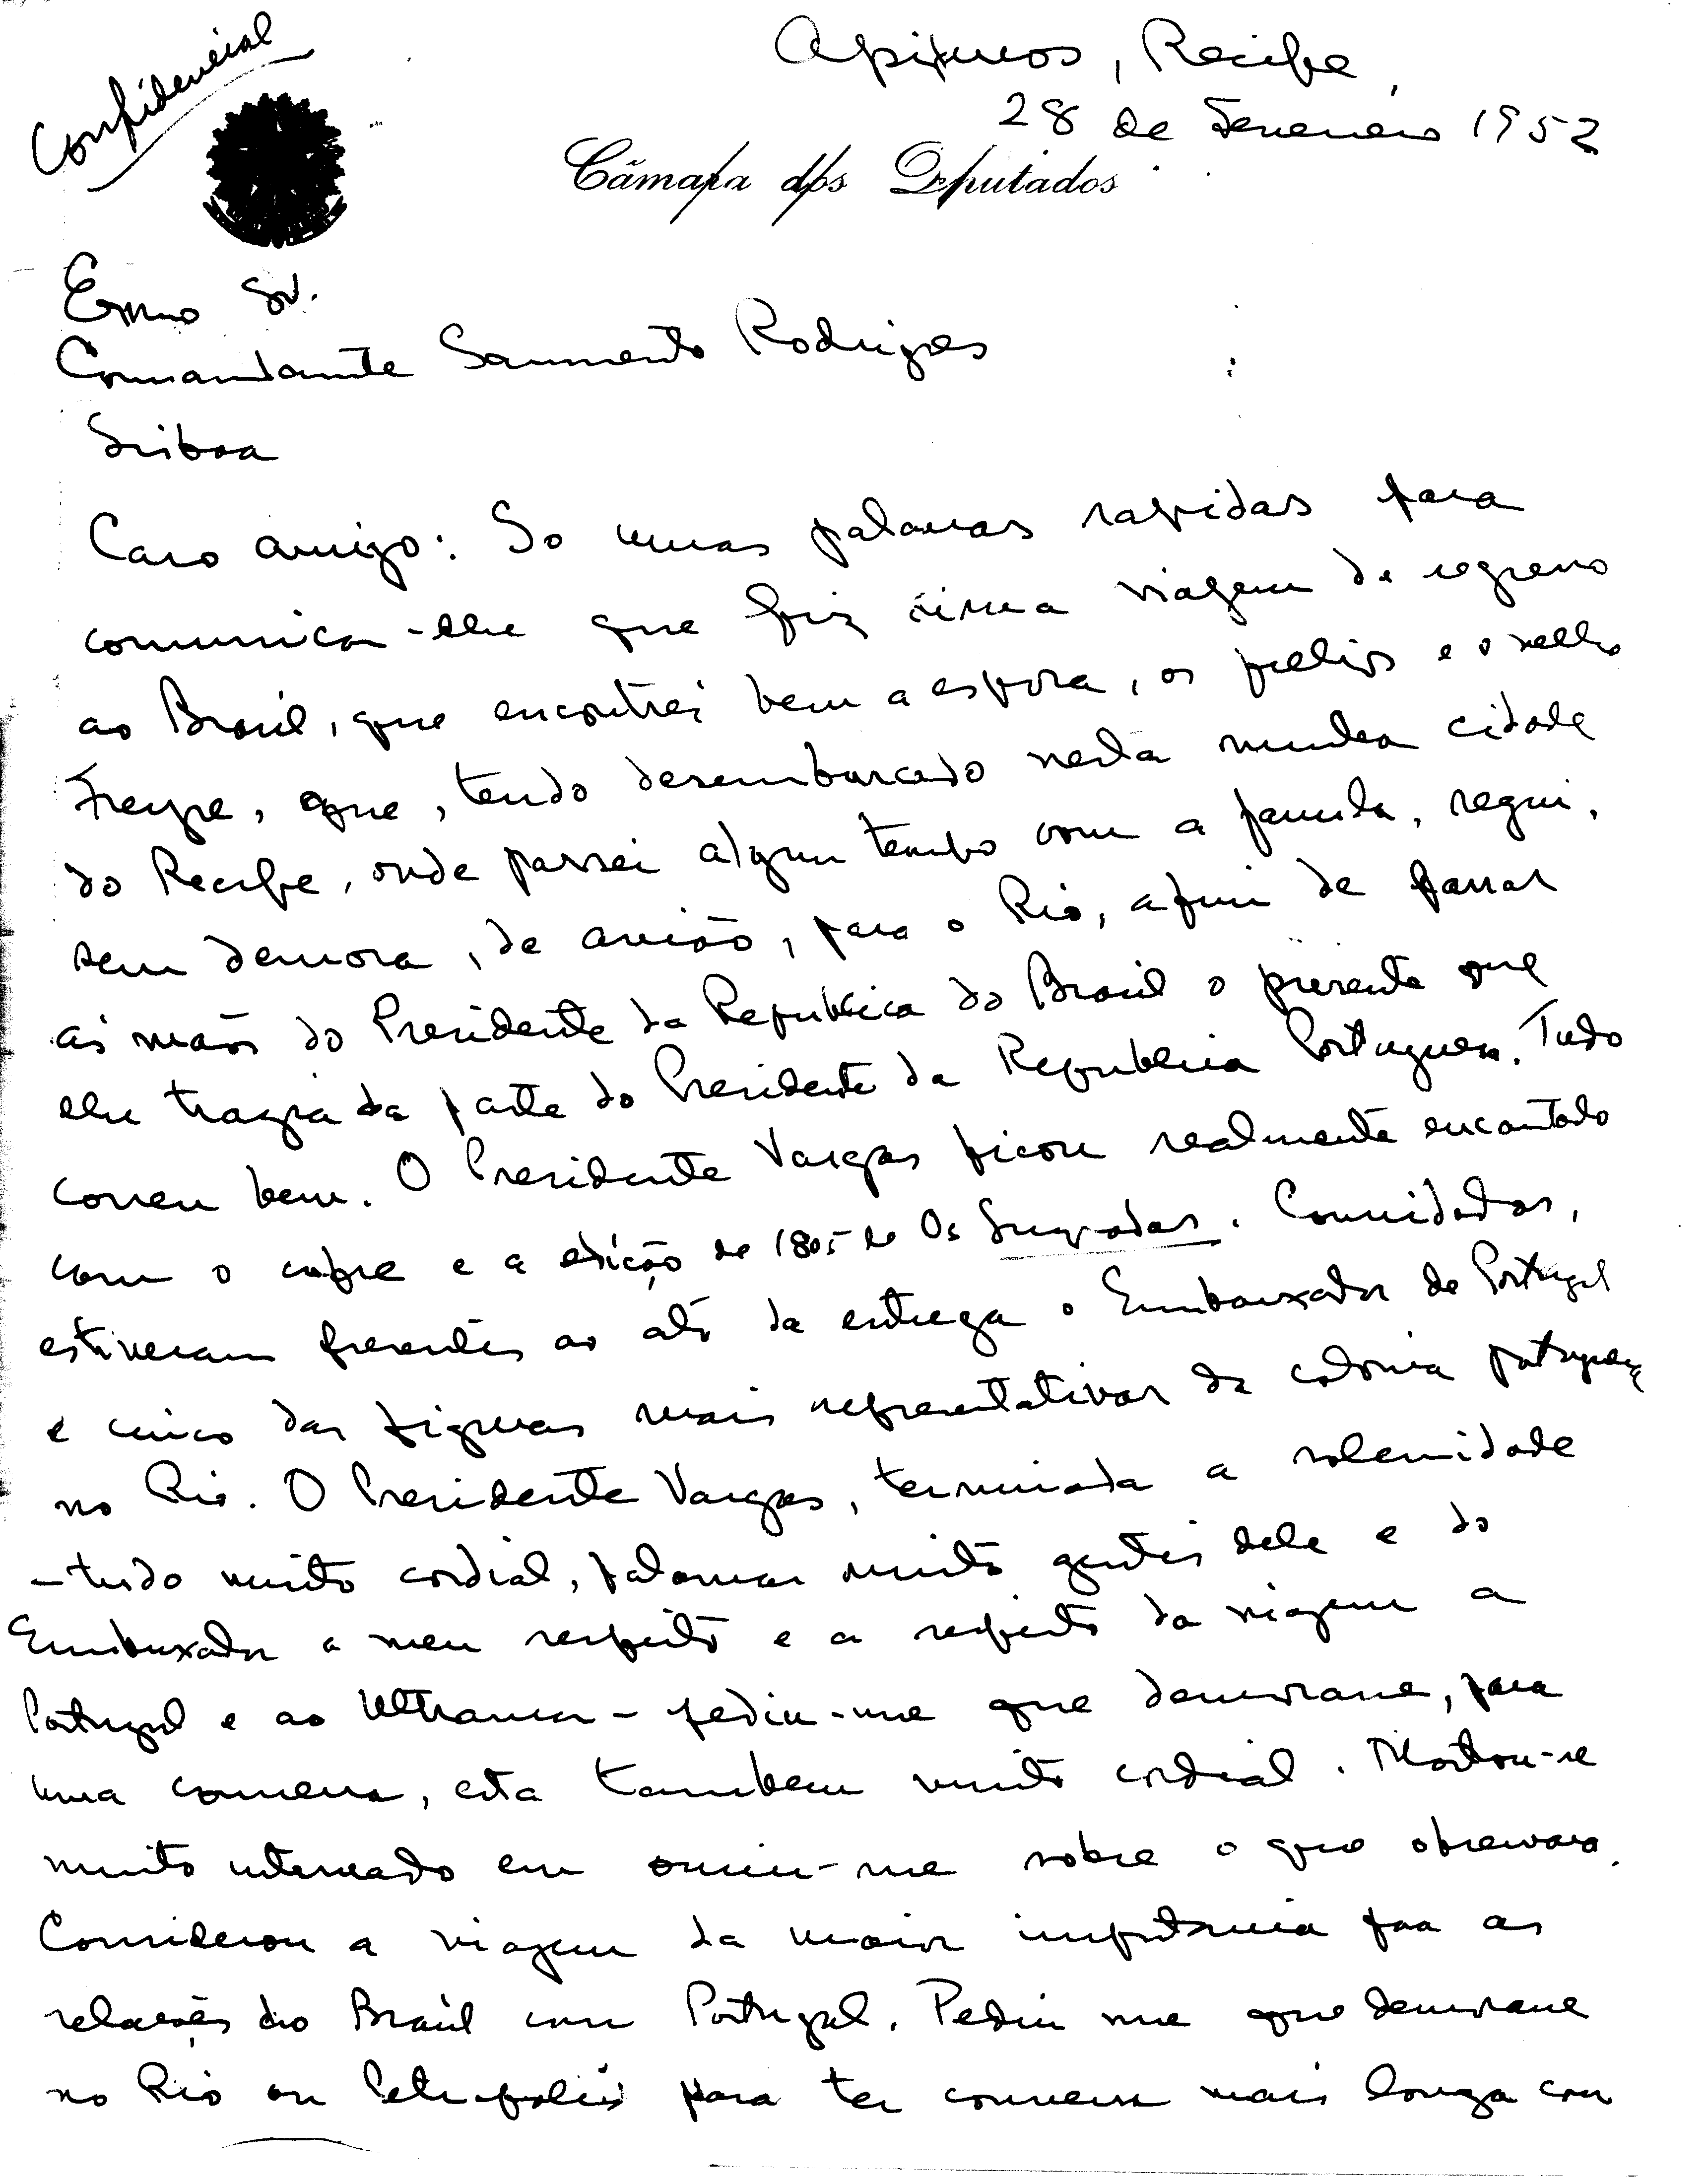 Confidencial
Apipucos, Recife,
28 de Fevereiro 1952
Câmara dos Deputados
Exmo Sr.
Comandante Sarmento Rodrigues
Lisboa
Caro amigo: So umas palavras rapidas para
comunicar-lhe que fiz ótima viagem de regresso
ao Brasil, que encontrei bem a esposa, os filhos e o velho
Freyre, que, tendo desembarcado nesta minha cidade
do Recife, onde passei algum tempo com a familia, segui,
sem demora, de avião, para o Rio, afim de passar
ás mãos do Presidente da Republica do Brasil o presente que
lhe trazia da parte do Presidente da Republica Portuguesa. Tudo
correu bem. O Presidente Vargas ficou realmente encantado
com o cofre e a edição de 1805 de Os Lusiadas. Convidados,
estiveram presentes ao ato da entrega o Embaixador de Portugal
e cinco das figuras mais representativas da colonia portuguesa
no Rio. O Presidente Vargas, terminada a solenidade
-tudo muito cordial, palavras muito gentis dele e do
Embaixador a meu respeito e a respeito da viagem a
Portugal e ao Ultramar - pediu-me que demorasse, para
uma conversa, esta tambem muito cordial. Mostrou-se
muito interessado em ouvir-me sobre o que observara.
Considerou a viagem da maior importancia para as
relações do Brasil com Portugal. Pediu me que demorasse
no Rio ou Petropolis para ter conversa mais longa com